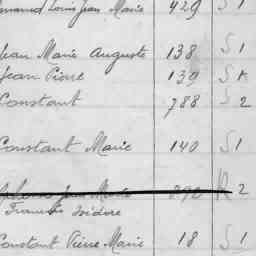 Louis Jean Marie 429 S 1
Jean Marie Auguste 138 S 1
Jean Pierre 139 S 1
Constant 788 S 2
Constant Marie 140 S 1
Jean Marie 292 R 2
François Isidore
Constant Pierre Marie 18 S 1